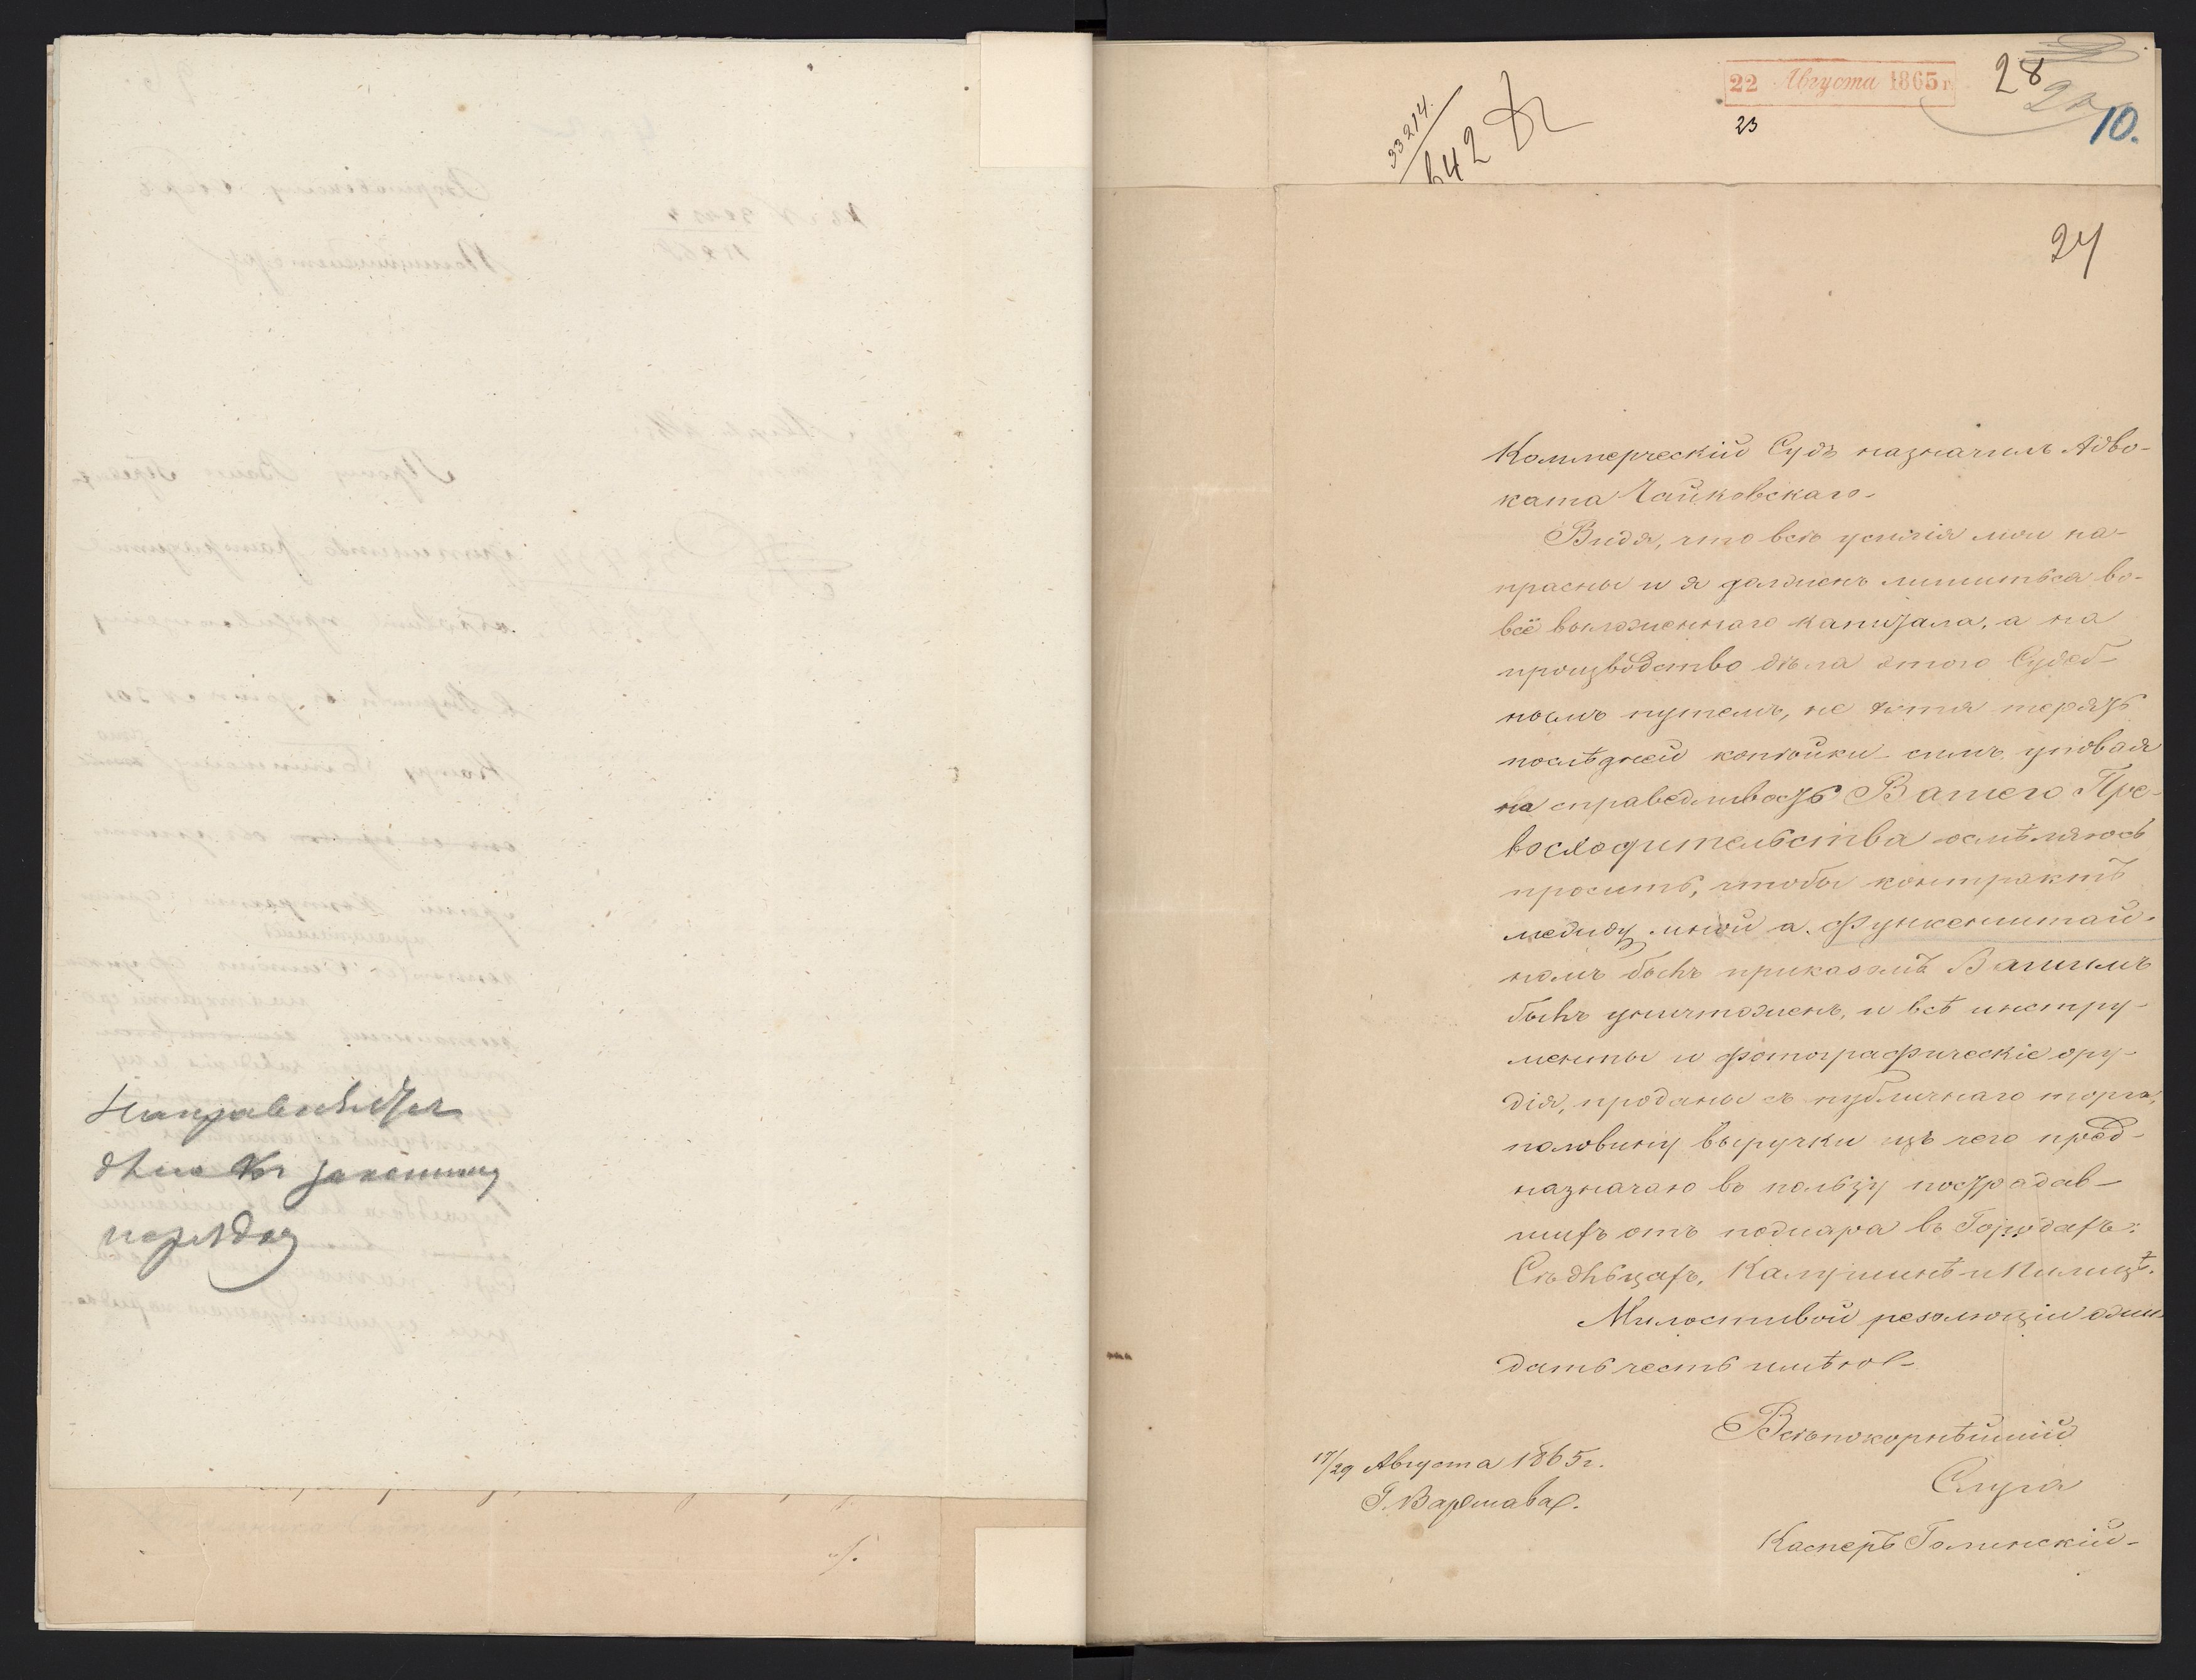 Направить
для къ законному
порядку
22 Августа 1865 г.
23
28
10.
33214
642
24
Коммерческій Судъ назначилъ Адво-
ката Чайковскаго.
Видя, что всѣ усилія мои на-
прасны и я долженъ лишиться во-
всё выложеннаго капитала, а на
производство дѣла этого Судеб-
нымъ путемъ, не хотя терять
послѣдней копѣйки симъ уповая
на справедливость Вашего Пре-
восходительства осмѣляюсь
просить, чтобы контрактъ
между мной а Функенштей-
номъ былъ приказомъ Вашимъ
былъ уничтоженъ, и всѣ инстру-
менты и фотографическіе ору-
дія, проданы съ публичнаго торга,
половину выручки изъ чего пред-
назначаю въ пользу пострадав-
шихъ отъ пожара въ Городахъ:
Сѣдльцахъ, Калушинѣ и
Милостивой резолюціи ожи-
дать честь имѣю.
Всепокорнѣйшій
Слуга
Касперъ Голинскій
17/29 Августа 1865 г.
Г. Варшава.